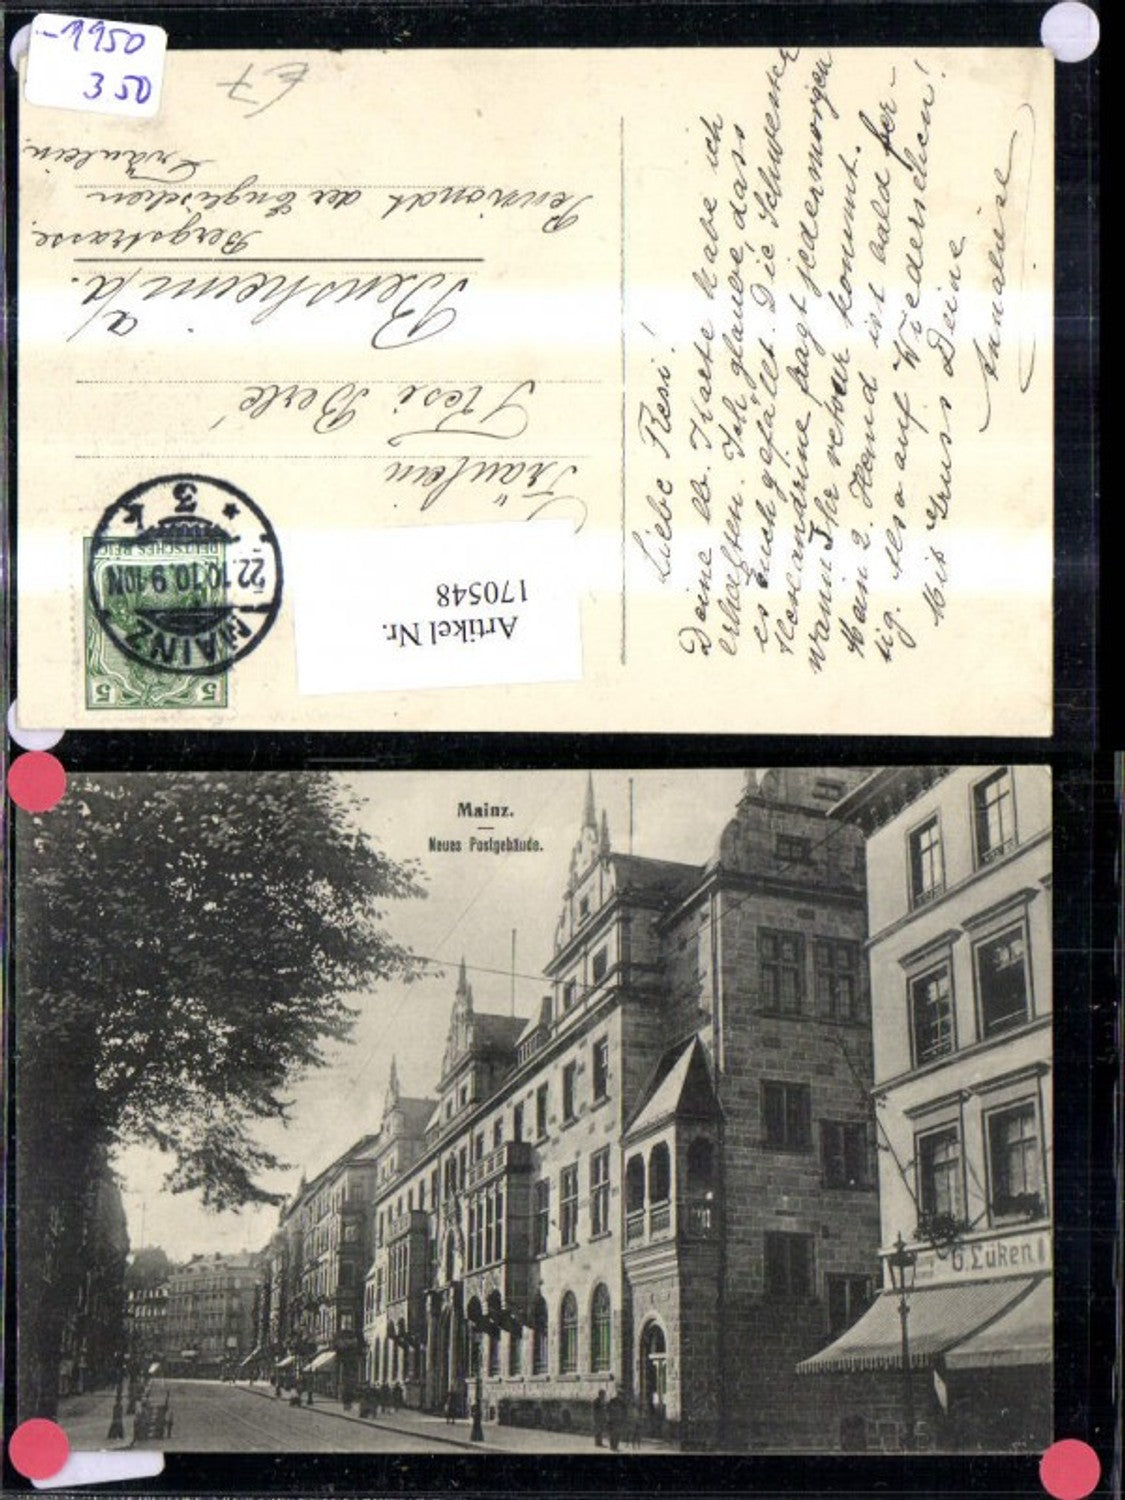 -9950
350
€ 7
Fräulein
Resi Berlé
Bensheim a/d.
Bergstrasse.
Pensionat der Englischen
Fräulein.
MAINZ
22.10.10.9-10N
* 3 k
DEUTSCHES REICH
5 5
Artikel Nr.
170548
Liebe Resi!
Deine lb. Karte habe ich
erhalten. Ich glaube dass
es Euch gefällt. Die Schwester
Alexandrine fragt jedermorgen
wann Ihr retour kommt.
Mein 2. Hemd ist bald fer-
tig. Also auf Wiedersehen!
Mit Gruss Deine
Annaliese
Mainz.
Neues Postgebäude.
G. Lüken